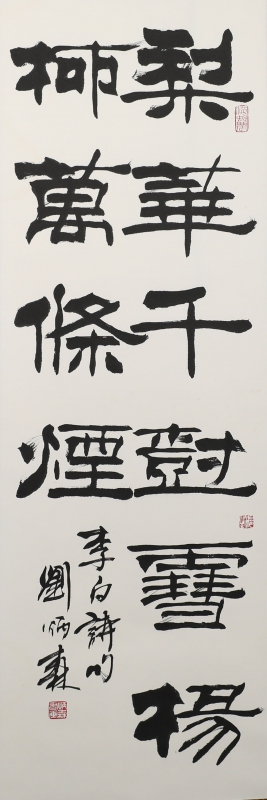 梨華千尌雪楊
柳萬條煙
李白詩句
劉炳森